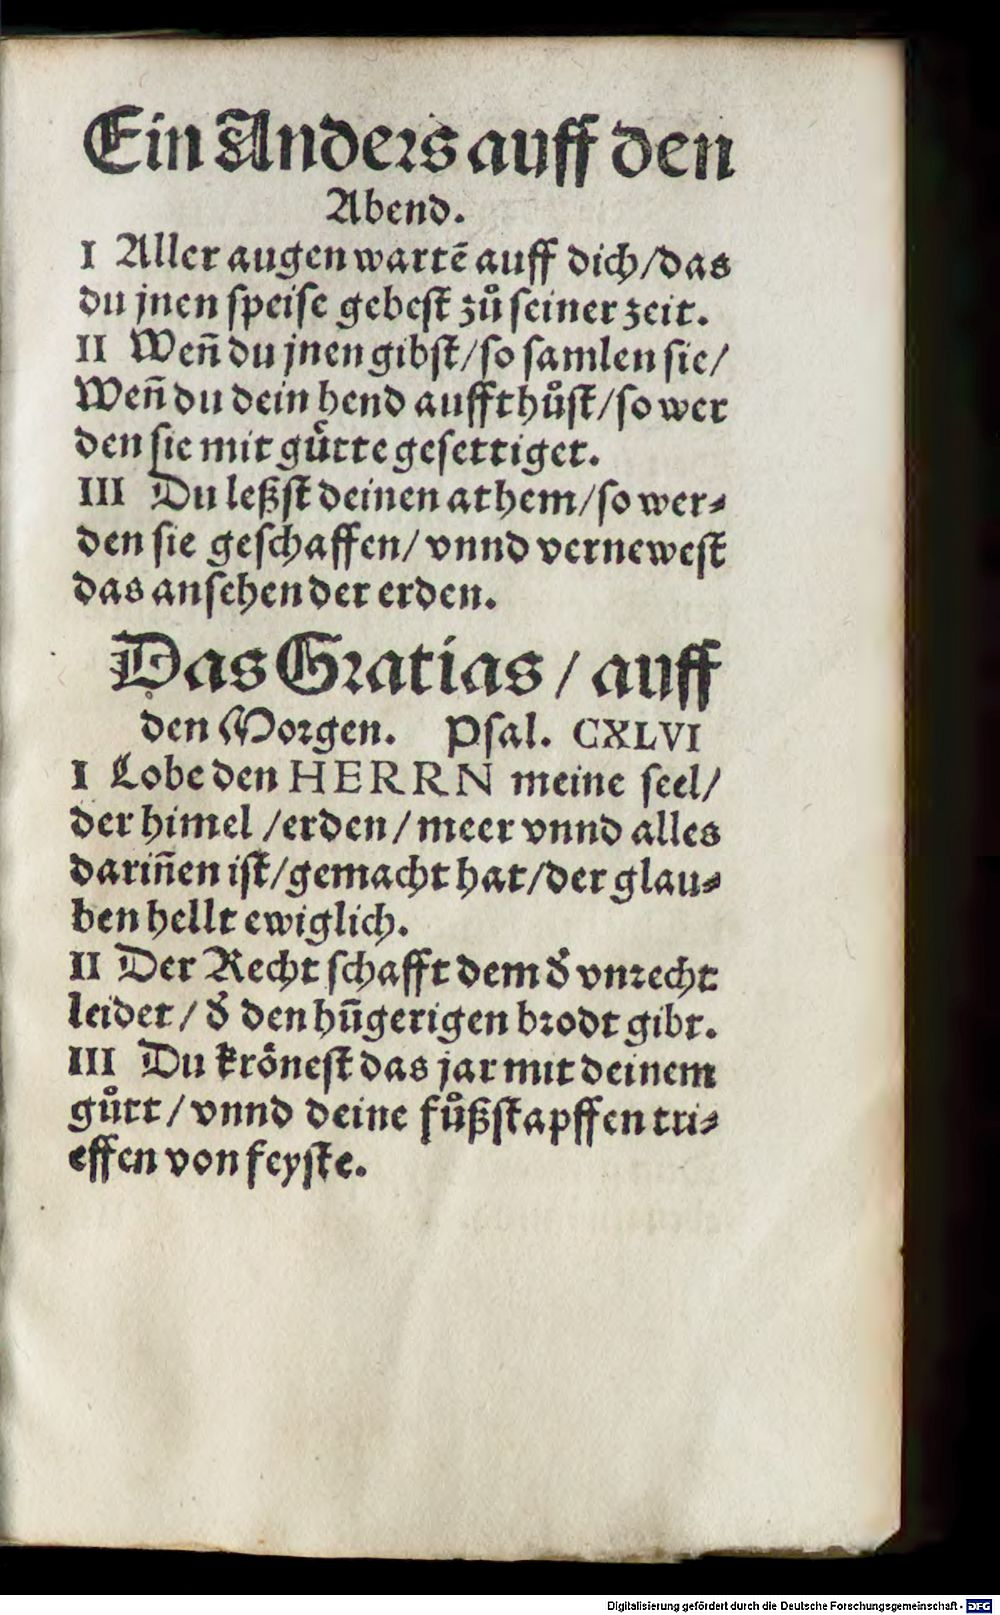 Ein Anders auff den
Abend.
I Aller augen wartē auff dich/das
du jnen speise gebest zůseiner zeit.
II Weñ du jnen gibst/so samlen sie/
Weñ du dein hend auffthůst/so wer
den sie mit gůtte gesettiget.
III Du leßst deinen athem/so wer⸗
den sie geschaffen/vnnd vernewest
das ansehen der erden.
Das Gratias/auff
den Morgen. Psal. CXLVI
I Lobe den HERRN meine seel/
der himel /erden/meer vnnd alles
dariñen ist/gemacht hat/der glau⸗
ben hellt ewiglich.
II Der Recht schafft dem d̕ vnrecht
leidet/ d̕ den hūgerigen brodt gibt.
III Du krönest das jar mit deinem
gůtt/vnnd deine fůßstapffen tri⸗
effen von feyste.
Digitalisierung gefördert durch die Deutsche Forschungsgemeinschaft - DFG